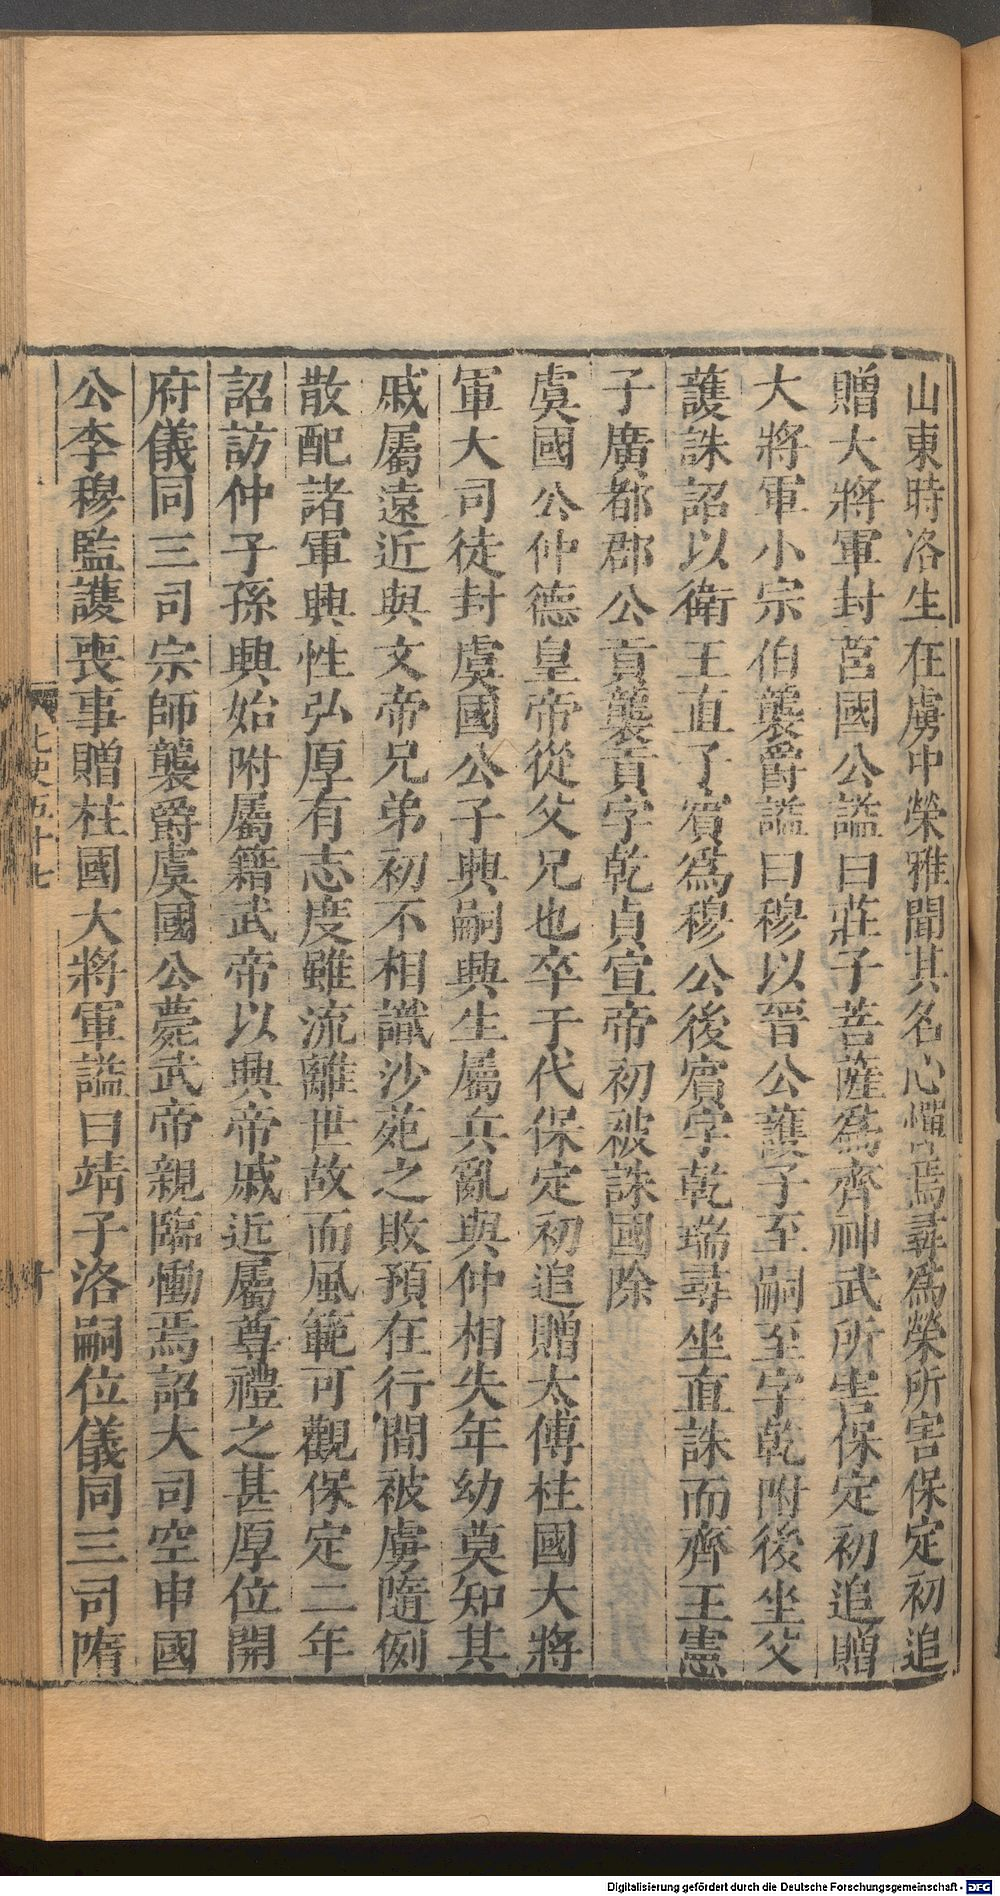 山東時洛生在虜中榮雅聞其名心憚焉尋為榮所害保定初追
贈大將軍封莒國公諡曰莊子菩薩為齊神武所害保定初追贈
大將軍小宗伯襲爵諡曰穆以晉公護子至嗣至字乾附後坐父
護誅詔以衛王直了賓為穆公後賓字乾瑞尋坐直誅而齊王憲
子廣都郡公貢襲貢字乾貞宣帝初被誅國除
虞國公仲德皇帝從父兄也卒于代保定初追贈太傅柱國大將
軍大司徒封虞國公子興嗣興生屬兵亂與仲相失年幼莫知其
戚屬遠近與文帝兄弟初不相識沙苑之敗預在行間被虜隨例
散配諸軍興性弘厚有志度雖流離世故而風範可觀保定二年
詔訪仲子孫興始附屬籍武帝以興帝戚近屬尊禮之甚厚位開
府儀同三司宗師襲爵虞國公薨武帝親臨慟焉詔大司空申國
公李穆監護喪事贈柱國大將軍諡曰靖子洛嗣位儀同三司隋
北史五十七
十
Digitalisierung gefördert durch die Deutsche Forschungsgemeinschaft - DFG